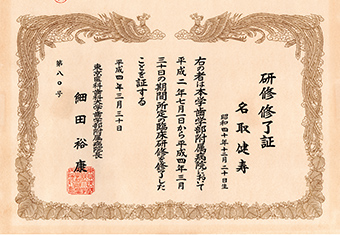 研修修了証
名取健寿
昭和四十年十二月二十日生
右の者は本学歯学部附属病院において
平成二年七月一日から平成四年三月
三十日の期間所定の臨床研修を修了した
ことを証する
平成四年三月三十日
東京医科歯科大学歯学部附属病院長
細田裕康
第八〇号